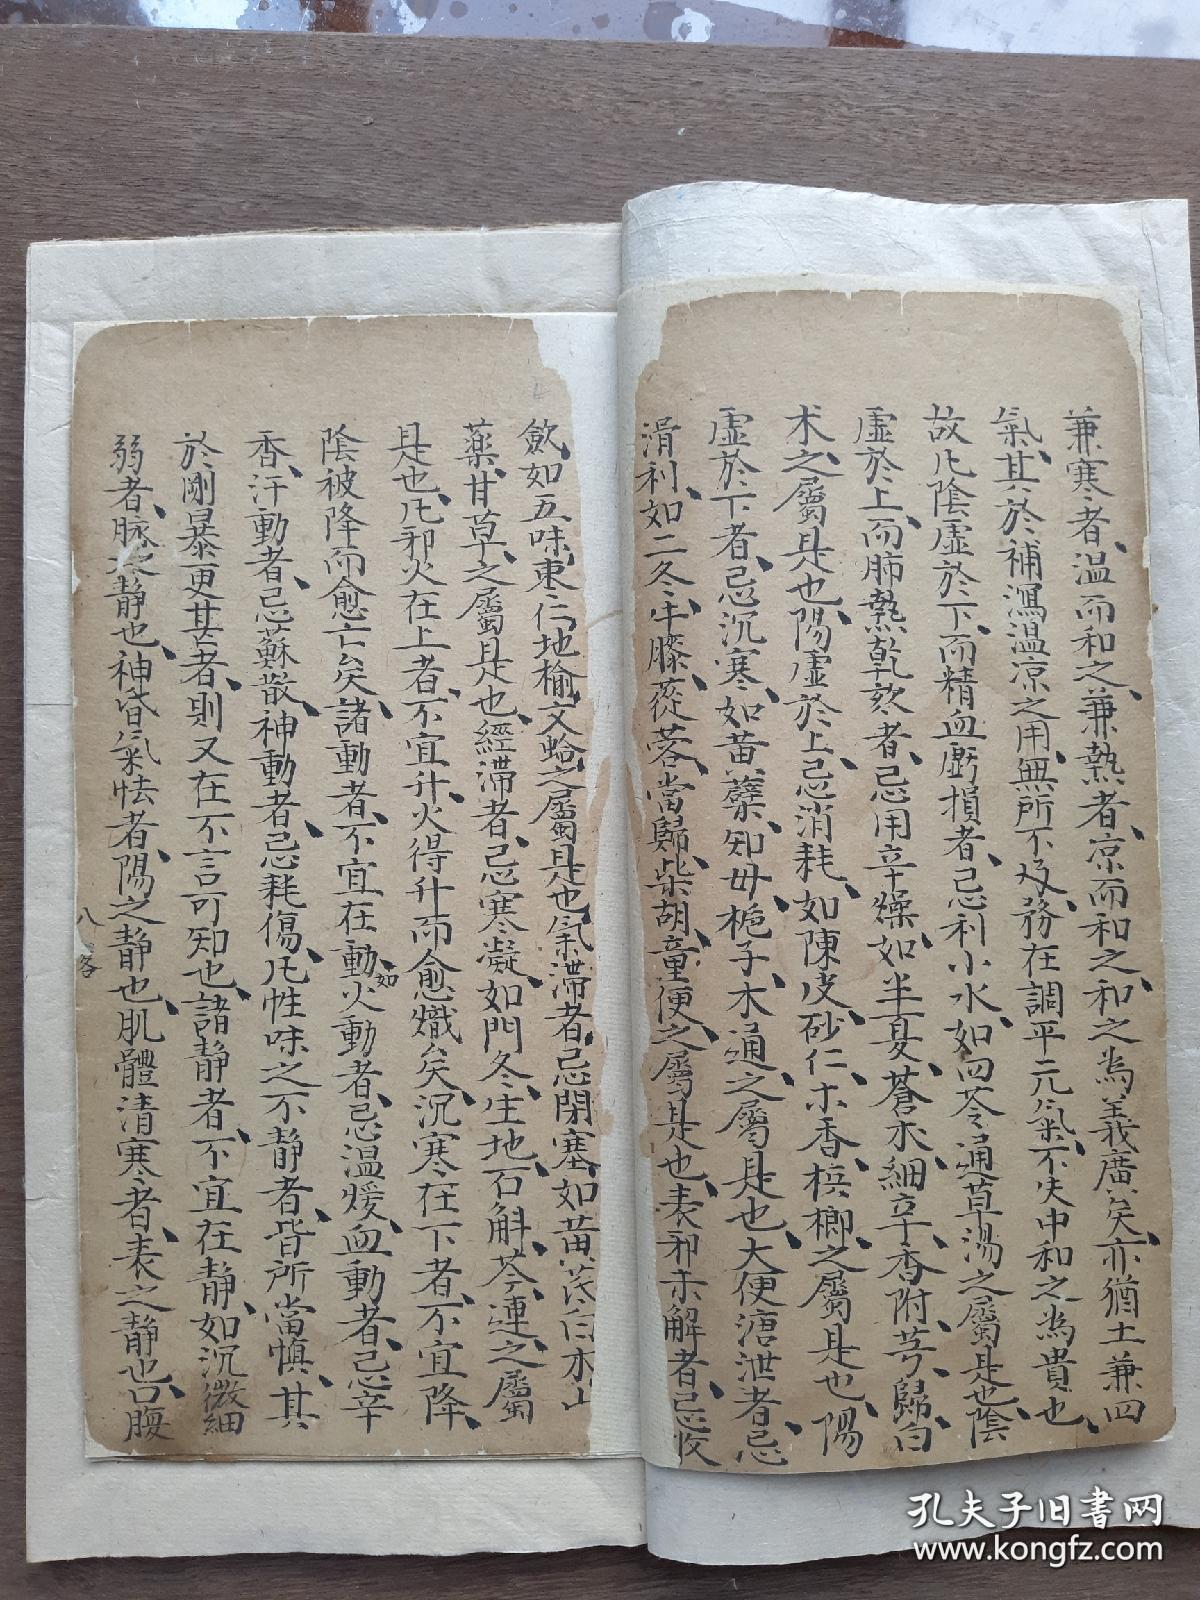 兼寒者、温而和之、兼熱者、凉而和之、和之為義廣矣、亦猶土兼四
氣、其於補瀉温凉之用、無所不及、務在調平元氣、不失中和之為貴也、
故凡陰虛於下、而精血虧損者、忌利小水、如四苓通草湯之屬是也、陰
虛於上、而肺熱乾欬者、忌用辛燥、如半夏、蒼朮、細辛、香附、芎、歸、白
朮之屬是也、陽虛於上、忌消耗、如陳皮、砂仁、木香、梹榔之屬是也、陽
虛於下者、忌沉寒、如黄蘗、知毋、梔子、木通、之屬是也、大便溏泄者、忌
滑利、如二冬、牛膝、蓯蓉、當歸、柴胡、童便、之屬是也、表邪未解者、忌收
斂、如五味、棗仁、地榆、文蛤之屬是也、氣滯者、忌閉塞、如黄芪、白朮、山
藥、甘草、之屬是也、經滯者、忌寒凝、如門冬、生地、石斛、芩、連、之屬
是也、凡邪火在上者、不宜升、火得升而愈熾矣、沉寒在下者、不宜降、
陰被降而愈亡矣、諸動者、不宜在動、如火動者、忌温煖、血動者、忌辛
香、汗動者、忌蘇散、神動者、忌耗傷、凡性味之不静者、皆所當慎、其
於剛暴更甚者、則又在不言可知也、諸静者、不宜在静、如沉微細
弱者、脉之静也、神昏氣怯者、陽之静也、肌體清寒者、表之静也、口腹
八
孔夫子旧书网
www.kongfz.com